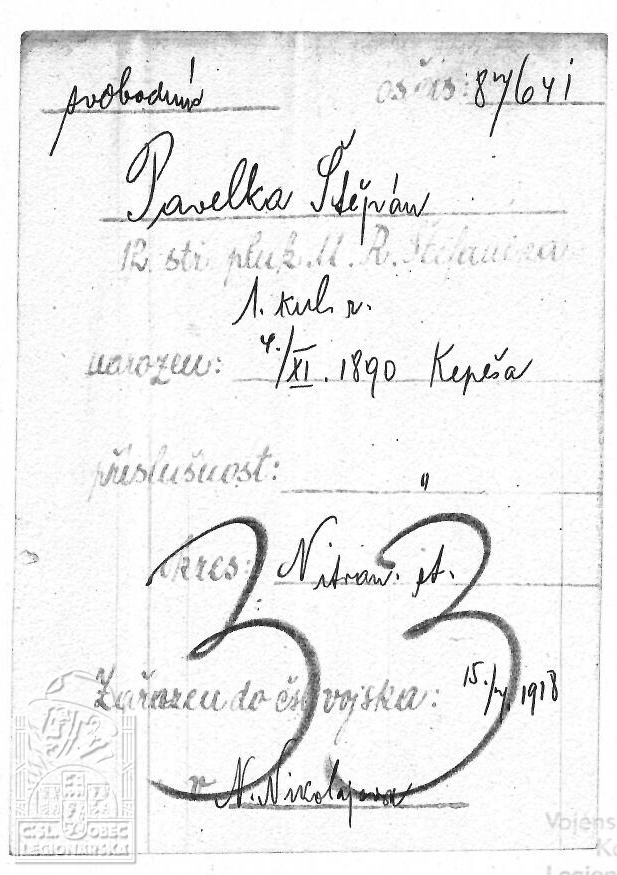 svobodník os. čís: 87/641
Pavelka Štěpán
12. stř. pluk M. R. Štefanika
1. kul. r.
narozen: 4./XI. 1890 Kepěša
příslušnost: "
okres: Nitran. st.
33
Zařazen do čs. vojska: 15./V. 1918
v N. Nikolajevsk
ČSL. OBEC
LEGIONÁŘSKÁ